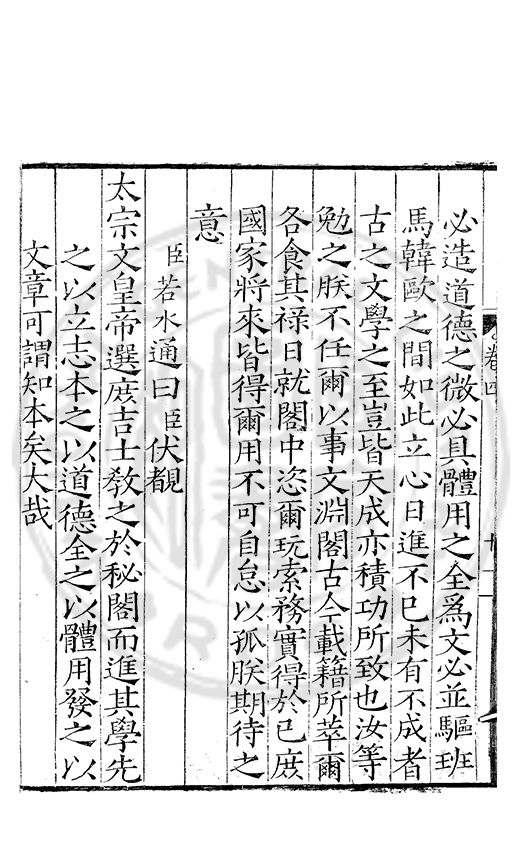 必造道德之微必具體用之全爲文必並驅班
馬韓歐之間如此立心日進不已未有不成者
古之文學之至豈皆天成亦積功所致也汝等
勉之朕不任爾以事文淵閣古今載籍所萃爾
各食其禄日就閣中恣爾玩索務實得於已庻
國家將來皆得爾用不可自怠以孤朕期待之
意
臣若水通曰臣伏覩
太宗文皇帝選庻吉士教之於秘閣而進其學先
之以立志本之以道德全之以體用發之以
文章可謂知本矣大哉
卷四